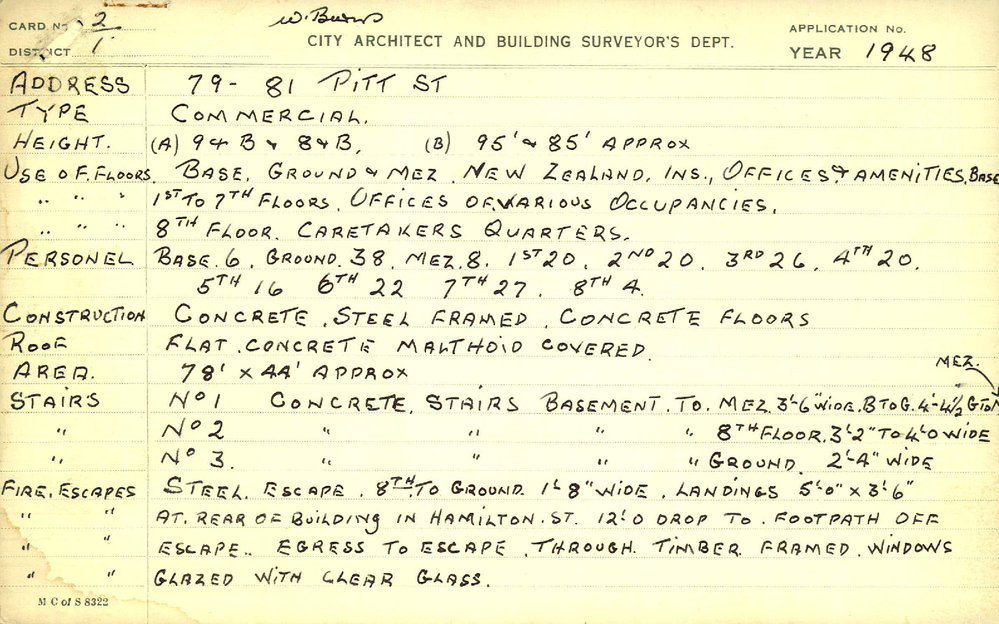 CARD No. 2 W. Burns
DISTRICT 1 CITY ARCHITECT AND BUILDING SURVEYOR'S DEPT. APPLICATION No.
YEAR 1948
ADDRESS 79 - 81 PITT ST
TYPE COMMERCIAL.
HEIGHT. (A) 9 & B & 8 & B. (B) 95' & 85' APPROX
USE OF FLOORS. BASE. GROUND & MEZ. NEW ZEALAND. INS., OFFICES & AMENITIES, BASE
" " " 1ST TO 7TH FLOORS. OFFICES OF VARIOUS OCCUPANCIES.
" " " 8TH FLOOR. CARETAKERS QUARTERS.
PERSONEL BASE. 6. GROUND. 38. MEZ. 8. 1ST 20. 2ND 20. 3RD 26. 4TH 20.
5TH 16 6TH 22 7TH 27. 8TH 4.
CONSTRUCTION CONCRETE. STEEL FRAMED. CONCRETE FLOORS
ROOF FLAT. CONCRETE MALTHOID COVERED.
AREA. 78' x 44' APPROX
MEZ.
STAIRS No 1 CONCRETE. STAIRS BASEMENT. TO. MEZ. 3'-6" WIDE. B TO G. 4'-4½ G TO M
" No 2 " " " 8TH FLOOR. 3'2" TO 4'-0 WIDE
" No 3. " " " " GROUND. 2'-4" WIDE
FIRE. ESCAPES STEEL. ESCAPE. 8TH. TO GROUND. 1'-8" WIDE. LANDINGS 5'-0" x 3'-6"
" " AT. REAR OF BUILDING IN HAMILTON. ST. 12'-0 DROP TO. FOOTPATH OFF
" " ESCAPE.. EGRESS TO ESCAPE. THROUGH. TIMBER. FRAMED. WINDOWS
" " GLAZED WITH CLEAR GLASS.
M C of S 8322